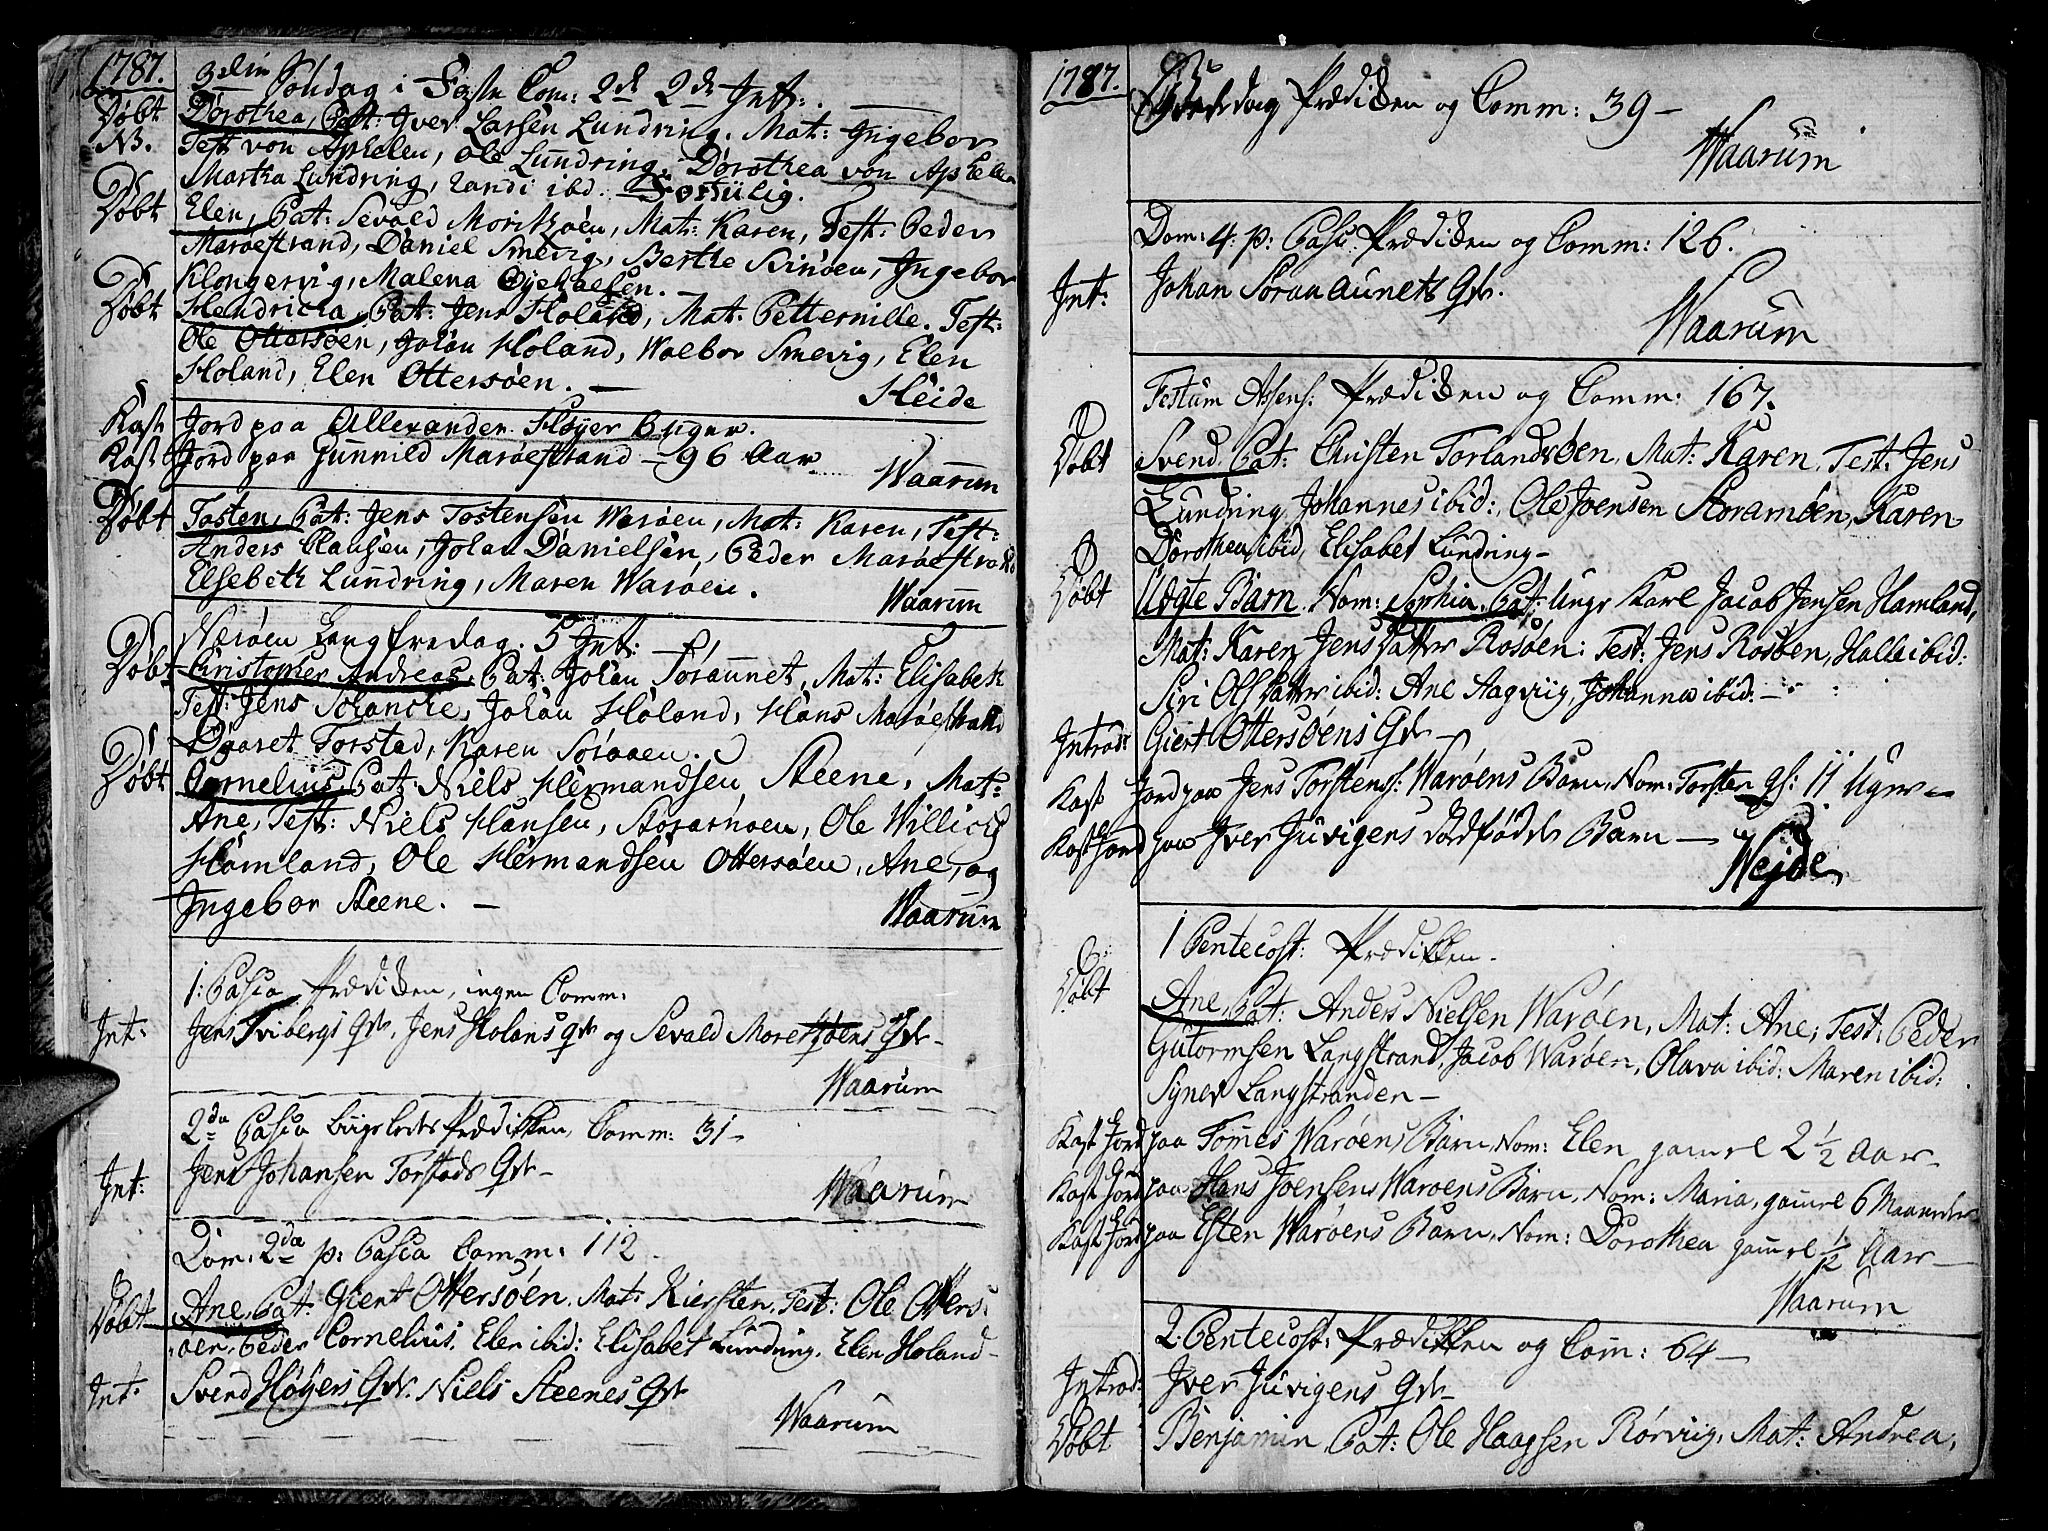 1787.
3die Søndag i Faste Com: 2d 2de Int:
Døbt Dorothea, Pat: Iver Larsen Lundring. Mat: Ingebor
NB. Test von Aphelen, Ole Lundring, Dorothea von Aphelen
Martha Lundring, Randi ibd.
Døbt Elen, Pat: Sevald Moritzøen, Mat: Karen, Test: Peder
Marøestrand, Daniel Smevig, Berthe Svinøen, Ingebor
Klongervig, Malena
Døbt Hendricha, Pat: Jens Holand, Mat: Petternille. Test:
Ole Ottersøen, Johan Holand, Wolbor Smevig, Elen
Holand, Elen Ottersøen. —
Heide
Kast Jord paa Allexander Høyer 6 uger.
Kast Jord paa Gunnild Marøestrand — 96 Aar
Waarum
Døbt Tosten, Pat: Jens Tostensen Warøen, Mat: Karen, Test:
Anders Clausen, Johan Danielsen, Peder Marøestrand
Elsebeth Lundring, Maren Warøen.
Waarum
Nærøen Langfredag. 5 Int:
Døbt Christopher Andreas, Pat: Johan Søraunet, Mat: Elisabeth
Test: Jens Schancke, Johan Holand, Hans Marøestrand
Dgaret Torstad, Karen
Døbt Cornelius, Pat: Niels Hermandsen Steene, Mat:
Ane, Test: Niels Hansen, Storarnøen, Ole Willicks
Homland, Ole Hermandsen Ottersøen, Ane, og
Ingebor Steene. —
Waarum
1: Pasca Prædicken, ingen Comm:
Int: Jens Tvibergs Qde. Jens Holans Qde og Sevald Moretzøens Qde —
Waarum
2da Pasca Prædicken, Comm: 31 —
Int: Jens Johansen Torstads Qde —
Waarum
Dom: 2dæ p: Pasca Comm: 112
Døbt Ane, Pat: Giert Ottersøen. Mat: Kiersten, Test: Ole Otters:
øen, Peder Cornelius, Elen ibid: Elisabet Lundring, Elen Holand —
Int: Svend Høyers Qde. Niels Steenes Qde
Waarum
1787.
Prædicken og Comm: 39 —
Waarum
Dom: 4. p: Pasc: Prædicken og Comm: 126.
Int: Johan Søraaunets Qde.
Waarum
Festum Assens: Prædicken og Comm: 167.
Døbt Svend, Pat: Christen Torlandsøen, Mat: Karen, Test: Jens
Lundring, Johannes ibid:, Ole Joensen Storamøen, Karen
Dorothea ibid, Elisabet Lundring —
Døbt Uægte Barn. Nom: Sophia, Pat: Ungr Karl Jacob Jensen Hamland,
Mat: Karen Jensdatter Rosøen: Test: Jens Rosøen, Halle ibid:
Siri Olsdatter ibid: Ane Aagviig, Johanna ibid. —
Introd: Giert Ottersøens Qde —
Kast Jord paa Jens Torstens: Warøens Barn, Nom: Torsten gl: 11 Uger —
Kast Jord paa Iver Juvigens dødfødde Barn —
Wejde
1 Pentecost: Prædikken —
Døbt Ane, Pat: Anders Nielsen Warøen, Mat: Ane, Test: Peder
Gutormsen Langstrand, Jacob Warøen, Olava ibid: Maren ibid:
Synev Langstranden —
Kast Jord paa Tomes Warøens Barn, Nom: Elen gamel 2 1/2 Aar —
Kast Jord paa Hans Joensens Warøens Barn, Nom: Maria, gamel 6 Maaneder
Kast Jord paa Esten Warøens Barn, Nom: Dorothea gamel 1/2 Aar —
Waarum
2. Pentecost: Prædikken og Com: 64 —
Introd: Iver Juvigens Qde —
Døbt Benjamin, Pat: Ole Haagsen Rørviig, Mat: Andrea,